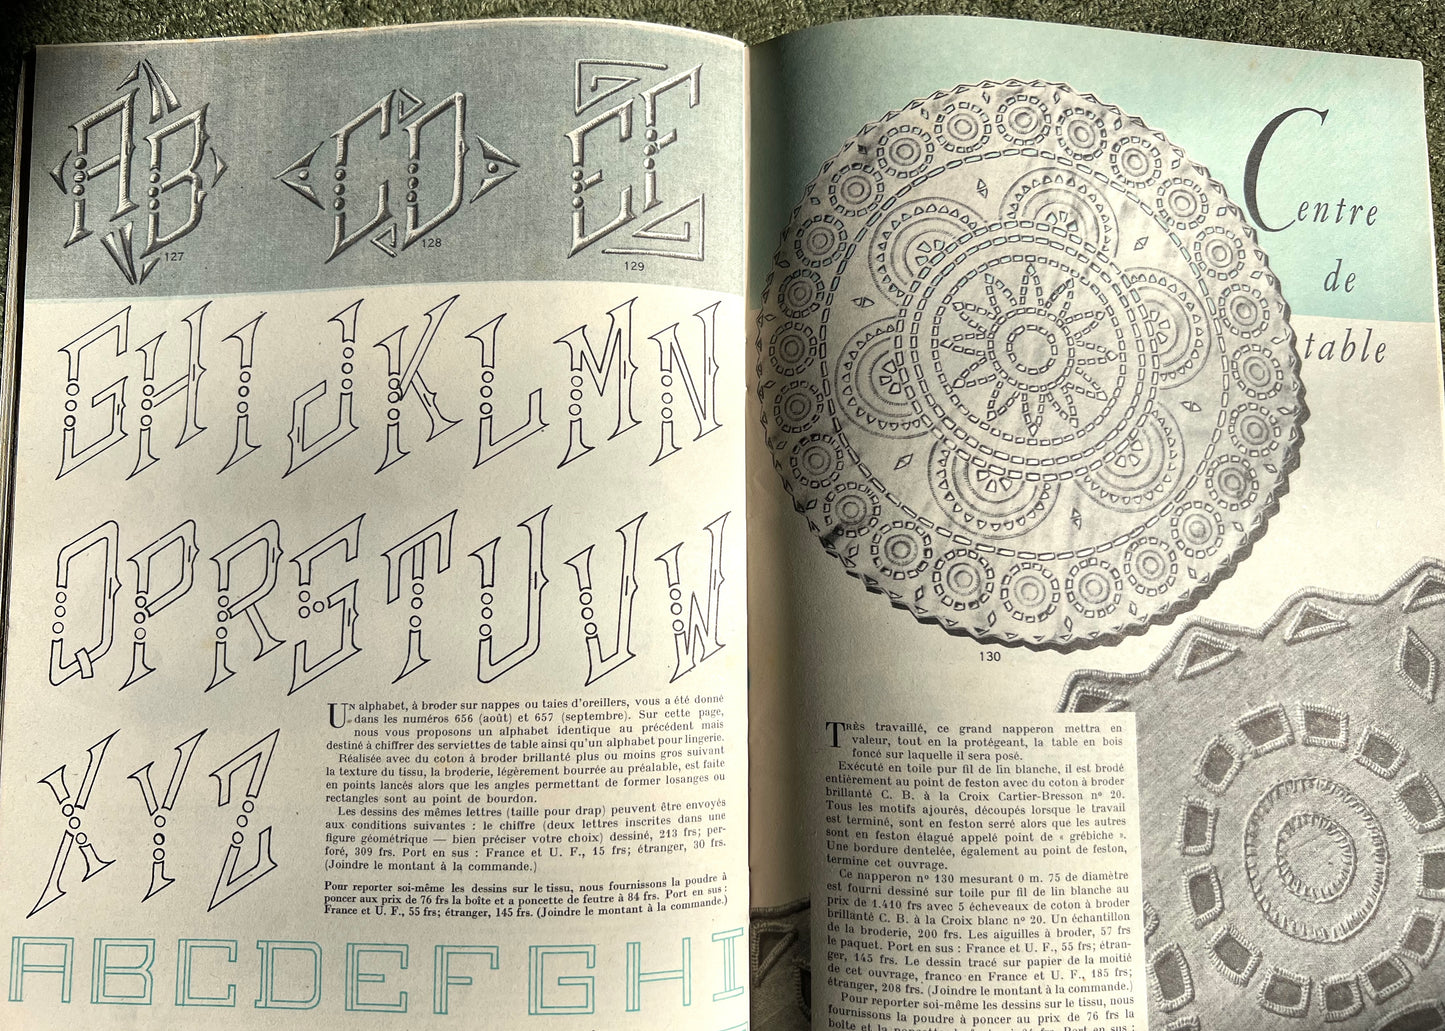 AB
127
CD
128
EF
129
GHIJKLMN
QPRSTUVW
XYZ
UN alphabet, à broder sur nappes ou taies d'oreillers, vous a été donné
dans les numéros 656 (août) et 657 (septembre). Sur cette page,
nous vous proposons un alphabet identique au précédent mais
destiné à chiffrer des serviettes de table ainsi qu'un alphabet pour lingerie.
Réalisée avec du coton à broder brillanté plus ou moins gros suivant
la texture du tissu, la broderie, légèrement bourrée au préalable, est faite
en points lancés alors que les angles permettant de former losanges ou
rectangles sont au point de bourdon.
Les dessins des mêmes lettres (taille pour drap) peuvent être envoyés
aux conditions suivantes : le chiffre (deux lettres inscrites dans une
figure géométrique — bien préciser votre choix) dessiné, 213 frs; per-
foré, 309 frs. Port en sus : France et U. F., 15 frs; étranger, 30 frs.
(Joindre le montant à la commande.)
Pour reporter soi-même les dessins sur le tissu, nous fournissons la poudre à
poncer aux prix de 76 frs la boîte et a poncette de feutre à 84 frs. Port en sus :
France et U. F., 55 frs; étranger, 145 frs. (Joindre le montant à la commande.)
ABCDEFGHI
Centre
de
table
130
TRÈS travaillé, ce grand napperon mettra en
valeur, tout en la protégeant, la table en bois
foncé sur laquelle il sera posé.
Exécuté en toile pur fil de lin blanche, il est brodé
entièrement au point de feston avec du coton à broder
brillanté C. B. à la Croix Cartier-Bresson nº 20.
Tous les motifs ajourés, découpés lorsque le travail
est terminé, sont en feston serré alors que les autres
sont en feston élagué appelé point de « grébiche ».
Une bordure dentelée, également au point de feston,
termine cet ouvrage.
Ce napperon nº 130 mesurant 0 m. 75 de diamètre
est fourni dessiné sur toile pur fil de lin blanche au
prix de 1.410 frs avec 5 écheveaux de coton à broder
brillanté C. B. à la Croix blanc nº 20. Un échantillon
de la broderie, 200 frs. Les aiguilles à broder, 57 frs
le paquet. Port en sus : France et U. F., 55 frs; étran-
ger, 145 frs. Le dessin tracé sur papier de la moitié
de cet ouvrage, franco en France et U. F., 185 frs;
étranger, 208 frs. (Joindre le montant à la commande.)
Pour reporter soi-même les dessins sur le tissu, nous
fournissons la poudre à poncer au prix de 76 frs la
boîte et la